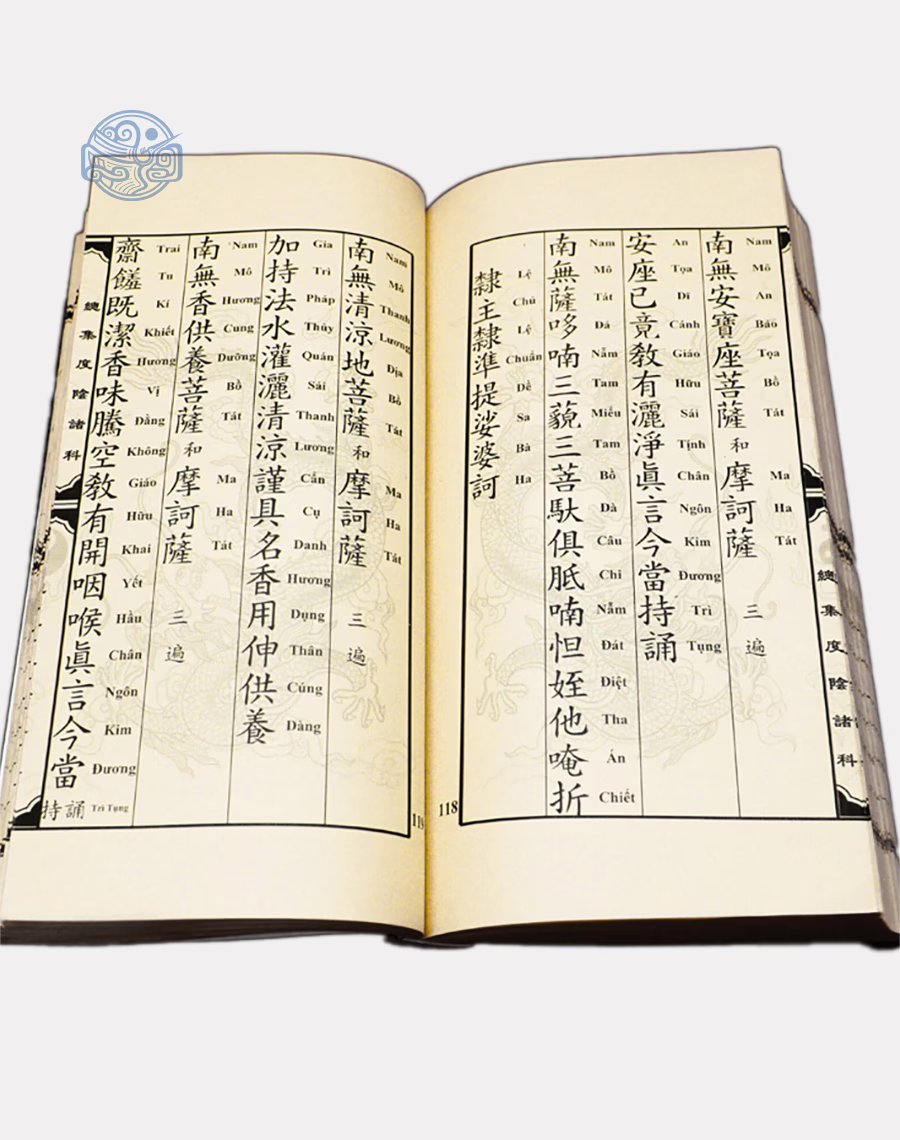 總集度陰諸科
南無安寶座菩薩和摩訶薩 三遍
Nam Mô An Bảo Tọa Bồ Tát Ma Ha Tát
安座已竟教有灑淨眞言今當持誦
An Tọa Dĩ Cánh Giáo Hữu Sái Tịnh Chân Ngôn Kim Đương Trì Tụng
南無薩哆喃三藐三菩馱俱胝喃怛姪他唵折
Nam Mô Tát Đá Nẵm Tam Miểu Tam Bồ Đà Câu Chi Nẵm Đát Diệt Tha Án Chiết
隸主隸準提娑婆訶
Lệ Chủ Lệ Chuẩn Đề Sa Bà Ha
118
南無清涼地菩薩和摩訶薩 三遍
Nam Mô Thanh Lương Địa Bồ Tát Ma Ha Tát
加持法水灌灑清涼謹具名香用伸供養
Gia Trì Pháp Thủy Quán Sái Thanh Lương Cẩn Cụ Danh Hương Dụng Thân Cúng Dàng
南無香供養菩薩和摩訶薩 三遍
Nam Mô Hương Cung Dưỡng Bồ Tát Ma Ha Tát
齋饈既潔香味騰空教有開咽喉眞言今當持誦
Trai Tu Kí Khiết Hương Vị Đằng Không Giáo Hữu Khai Yết Hầu Chân Ngôn Kim Đương Trì Tụng
總集度陰諸科
119